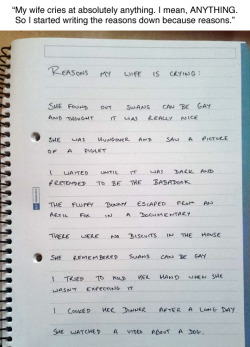 “My wife cries at absolutely anything. I mean, ANYTHING.
So I started writing the reasons down because reasons.”
REASONS MY WIFE IS CRYING:
SHE FOUND OUT SWANS CAN BE GAY
AND THOUGHT IT WAS REALLY NICE
SHE WAS HUNGOVER AND SAW A PICTURE
OF A PIGLET
I WAITED UNTIL IT WAS DARK AND
PRETENDED TO BE THE BABADOOK
THE FLUFFY BUNNY ESCAPED FROM AN
ARTIC FOX IN A DOCUMENTARY
THERE WERE NO BISCUITS IN THE HOUSE
SHE REMEMBERED SWANS CAN BE GAY
I TRIED TO HOLD HER HAND WHEN SHE
WASN'T EXPECTING IT
I COOKED HER DINNER AFTER A LONG DAY
SHE WATCHED A VIDEO ABOUT A DOG.